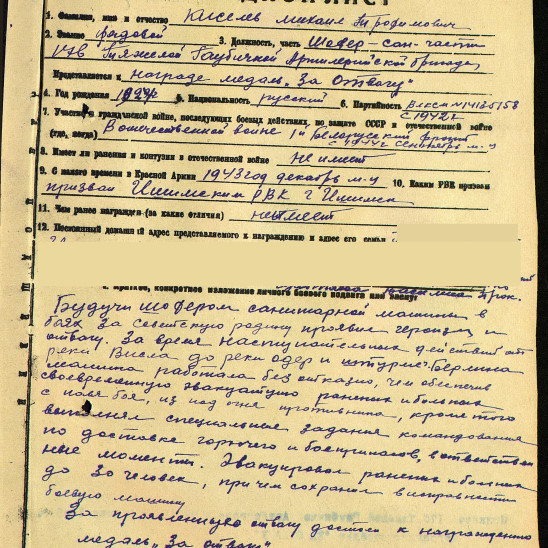 1. Фамилия, имя и отчество Кисель Михаил Трофимович
2. Звание рядовой 3. Должность, часть Шофер-сан-части
Тяжелой Гаубичной Артиллерийской бригады
Представляется к награде медаль „За Отвагу"
4. Год рождения 1924 5. Национальность русский 6. Партийность ВЛКСМ №14135158
с 1942 г
7. Участие в гражданской войне, последующих боевых действиях по защите СССР и отечественной войне
(где, когда) В отечественной войне 1й Белорусский фронт
с 1944 г сентябрь м-ц
8. Имеет ли ранения и контузии в отечественной войне не имеет
9. С какого времени в Красной Армии 1943 год декабрь м-ц 10. Каким РВК призван
призван Ишимским РВК г Ишимск
11. Чем ранее награжден (за какие отличия) не имеет
12. Постоянный домашний адрес представляемого к награждению и адрес его семьи
I. Краткое, конкретное изложение личного боевого подвига или заслуг
Будучи шофером санитарной машины в
боях за советскую родину проявил героизм и
отвагу. За время наступательных действий от
реки Висла до реки одер и штурме Берлина
машина работала без отказно, чем обеспечив
своевременную эвакуацию раненых и больных
с поля боя, из под огня противника, кроме того
выполнял специальные задания командования
по доставке горючего и боеприпасов, в ответствен
ные моменты. Эвакуировал раненых и больных
до 30 человек, при чем сохранил в исправности
боевую машину.
За проявленную отвагу достоин к награждению
медаль „За отвагу"